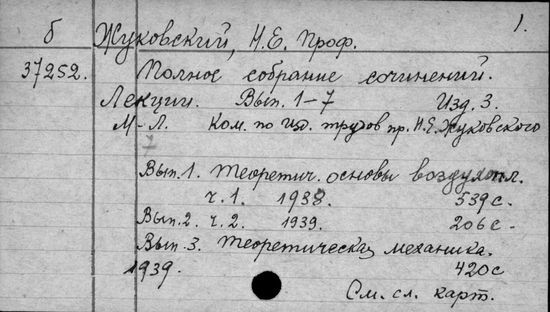 1.
б Жуковский, Н.Е. Проф.
37252. Полное собрание сочинений.
Лекции. Вып. 1-7 Изд. 3.
М-Л. Ком. по изд. трудов пр. Н.Е.Жуковского
Вып.1. Теоретич. основы воздухопл.
ч.1. 1938. 539 с.
Вып.2. ч.2. 1939. 206 с.
Вып.3. Теоретическая механика.
1939. 420 с
См. сл. карт.